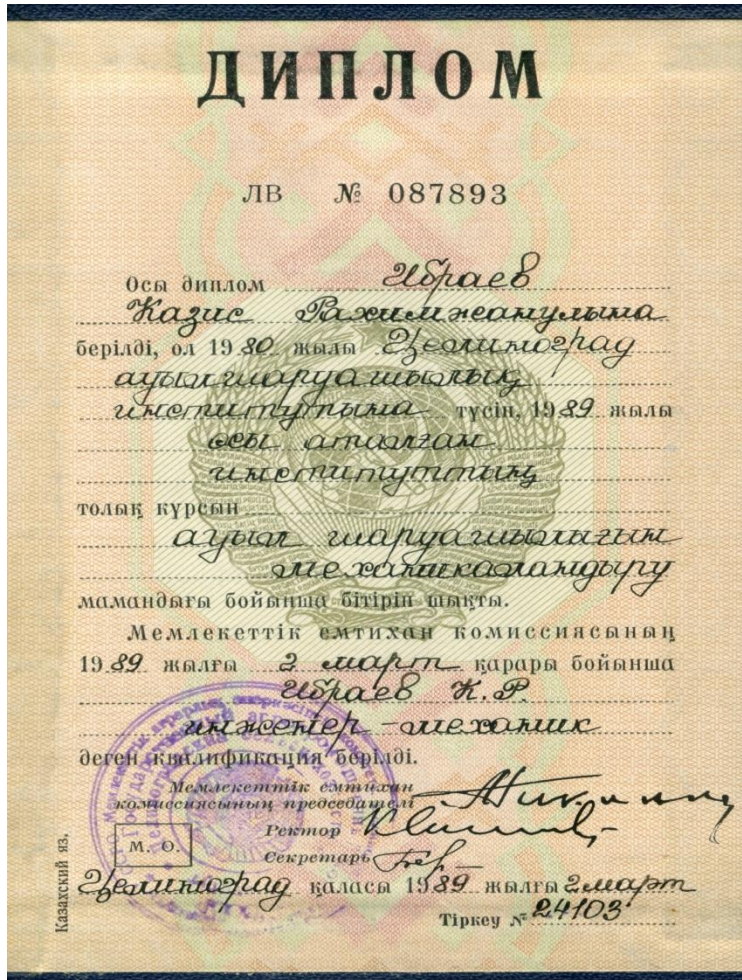 ДИПЛОМ
ЛВ № 087893
Осы диплом Ибраев
Казис Рахимжанулына
берілді, ол 1980 жылы Целиноград
ауылшаруашылық
институтына түсіп, 1989 жылы
осы аталған
институттың
толық курсын
ауыл шаруашылығын
механикаландыру
мамандығы бойынша бітіріп шықты.
Мемлекеттік емтихан комиссиясының
1989 жылғы 2 март қарары бойынша
Ибраев К.Р.
инженер-механик
деген квалификация берілді.
Мемлекеттік емтихан
комиссиясының председателі
Ректор
М. О.
Секретарь
Целиноград қаласы 1989 жылғы 2 март
Тіркеу № 24103
Казахский яз.